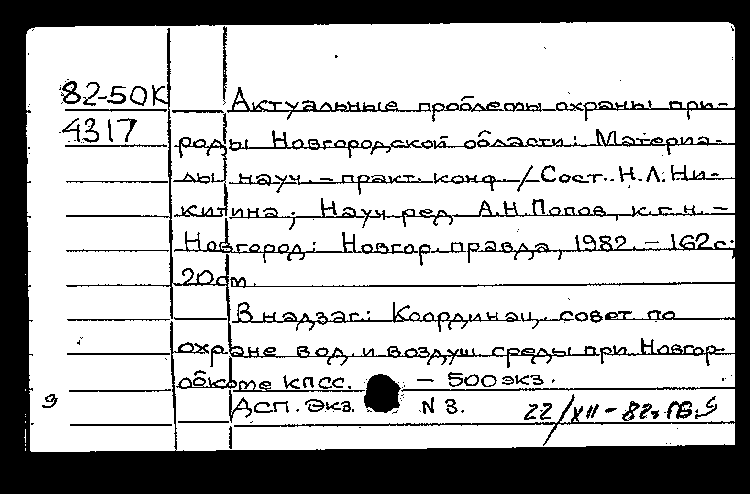 82-50К
4317
Актуальные проблемы охраны при-
роды Новгородской области: Материа-
лы науч.-практ. конф. / Сост. Н.Л.Ни-
китина; Науч. ред. А.Н.Попов, к.г.н. -
Новгород: Новгор. правда, 1982. - 162с;
20см.
В надзаг.: Координац. совет по
охране вод. и воздуш. среды при Новгор-
обкоме КПСС. - 500 экз.
ДСП. Экз. N 3.
22/XII-82г.
9